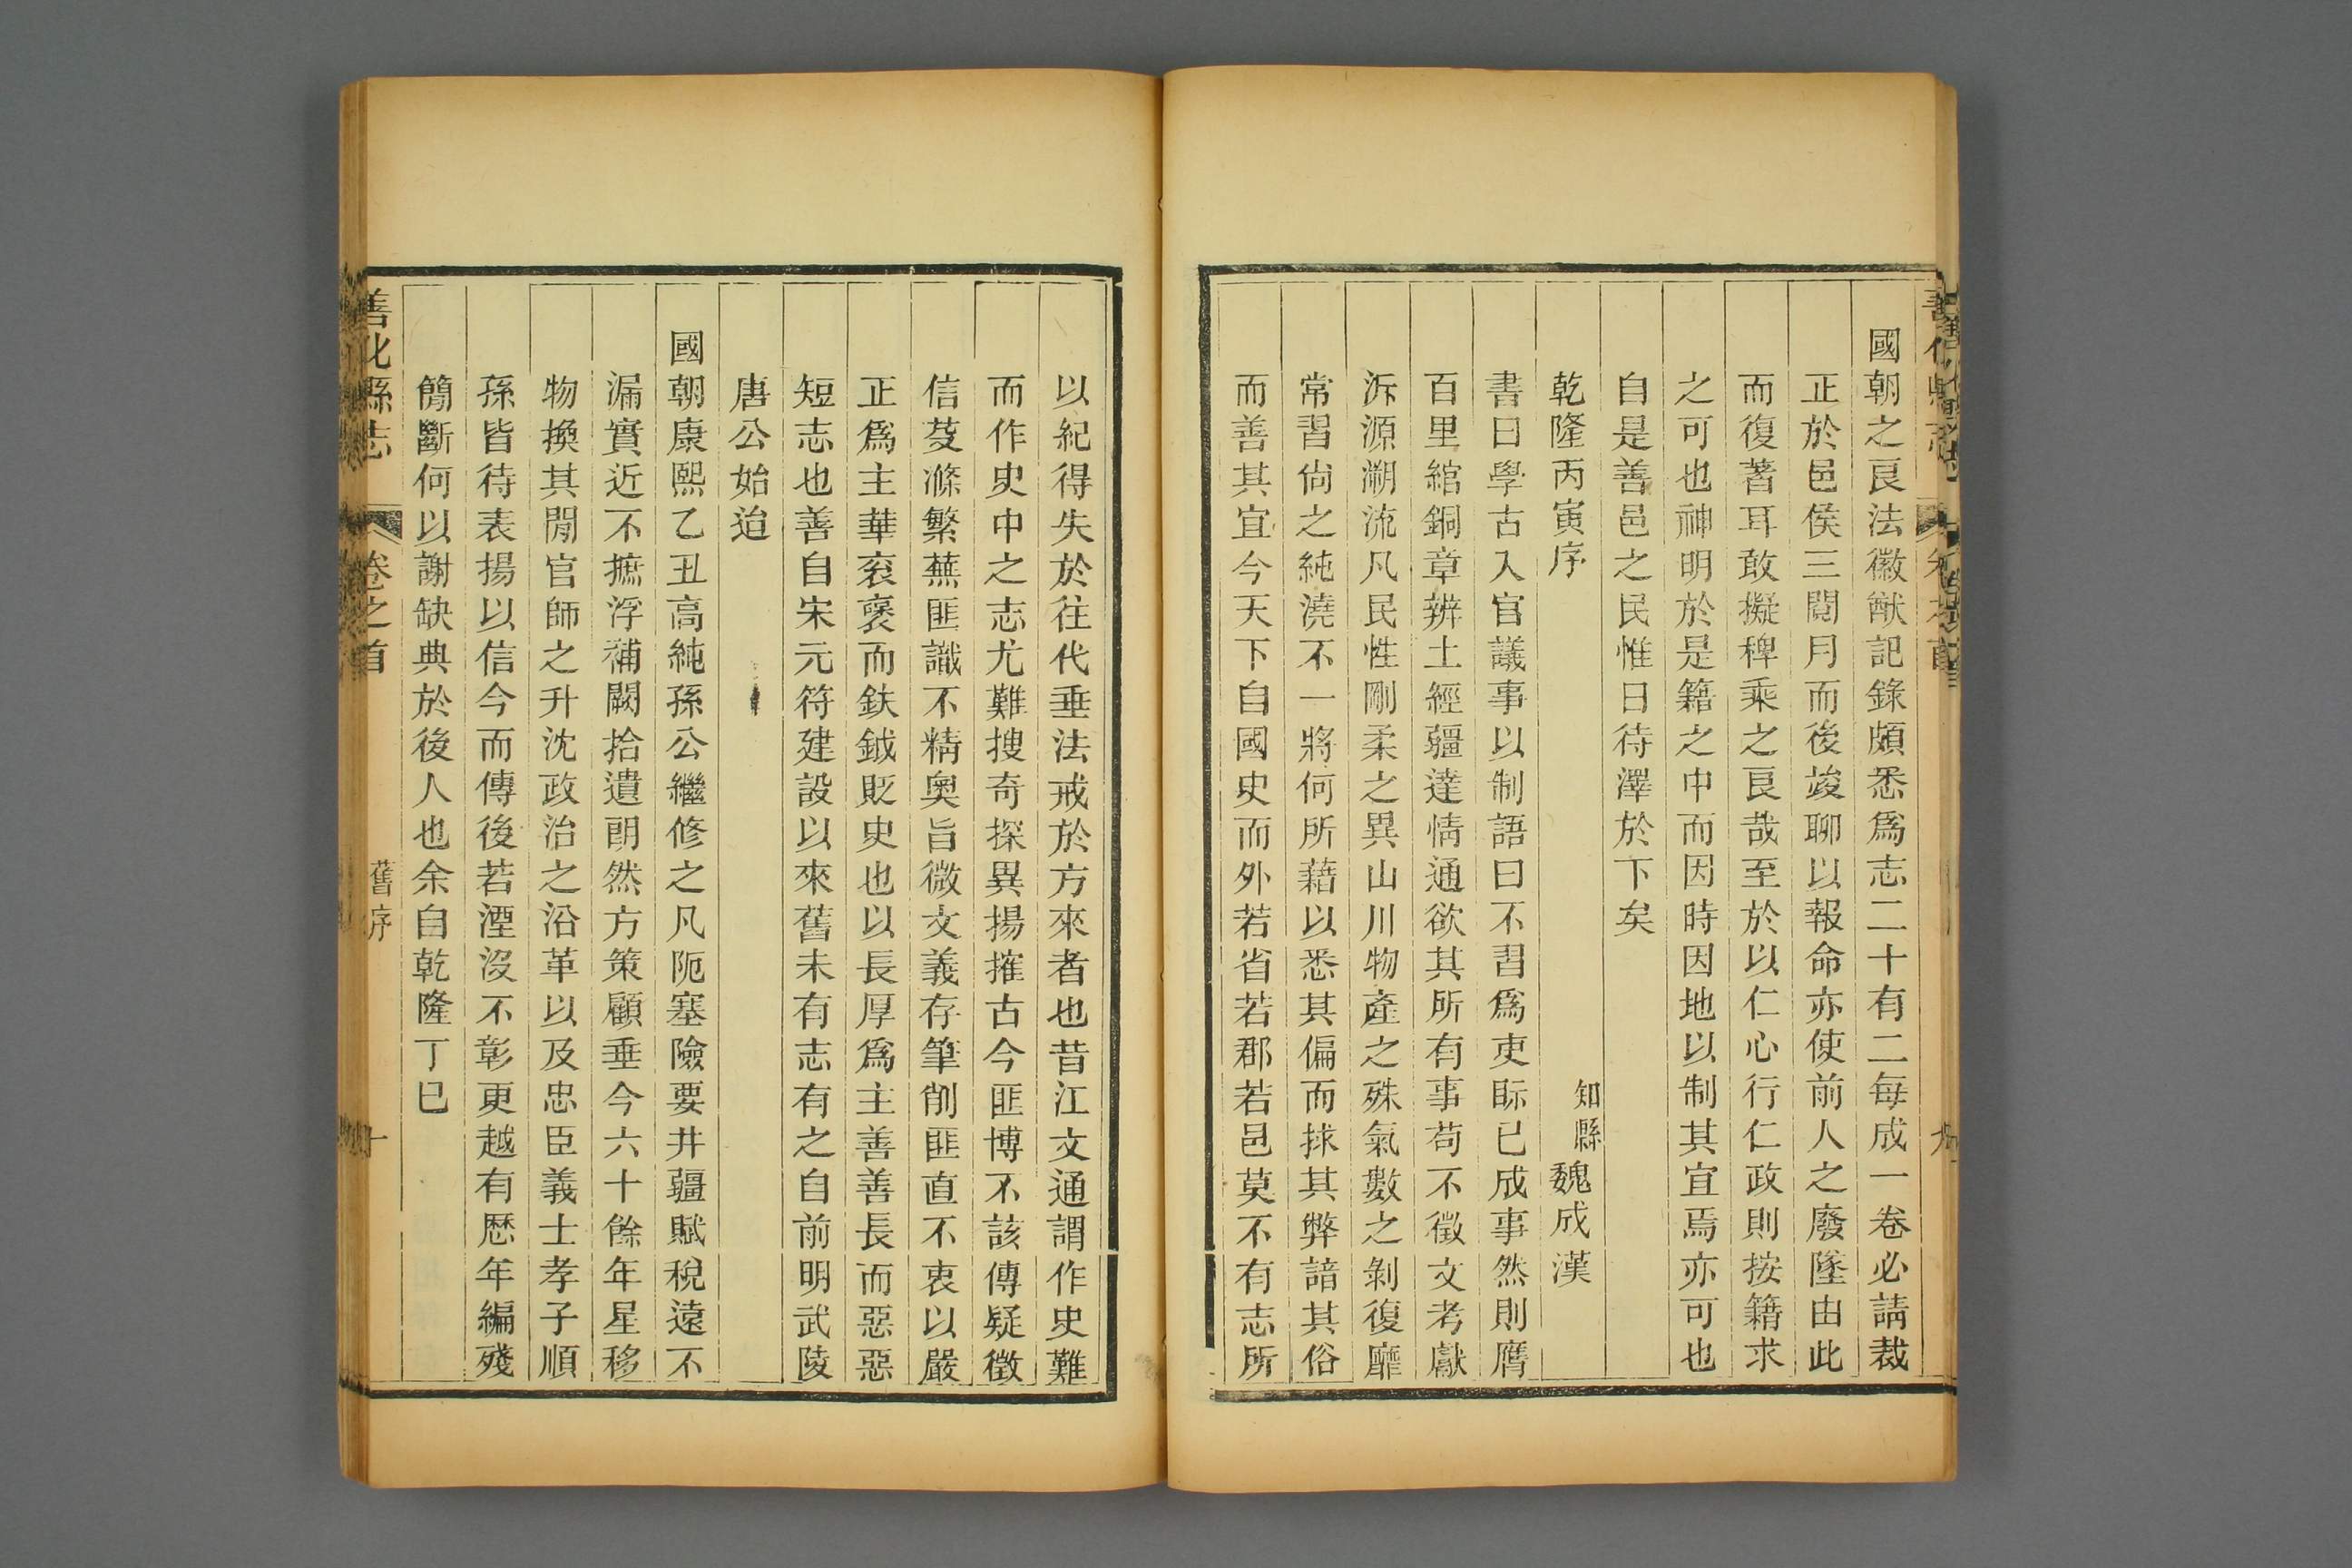 國朝之良法徽猷記錄頗悉爲志二十有二每成一卷必請裁
正於邑侯三閱月而後竣聊以報命亦使前人之廢墜由此
而復著耳敢擬稗乘之良哉至於以仁心行仁政則按籍求
之可也神明於是籍之中而因時因地以制其宜焉亦可也
自是善邑之民惟日待澤於下矣
乾隆丙寅序 知縣魏成漢
書曰學古入官議事以制語曰不習爲吏眎已成事然則膺
百里綰銅章辨土經疆達情通欲其所有事苟不徵文考獻
泝源溯流凡民性剛柔之異山川物產之殊氣數之剝復靡
常習尙之純澆不一將何所藉以悉其偏而捄其弊諳其俗
而善其宜今天下自國史而外若省若郡若邑莫不有志所
以紀得失於往代垂法戒於方來者也昔江文通謂作史難
而作史中之志尤難搜奇探異揚搉古今匪博不該傳疑徵
信芟滌繁蕪匪識不精奧旨微文義存筆削匪直不衷以嚴
正爲主華袞褒而鈇鉞貶史也以長厚爲主善善長而惡惡
短志也善自宋元符建設以來舊未有志有之自前明武陵
唐公始迨
國朝康熙乙丑高純孫公繼修之凡阨塞險要井疆賦稅遠不
漏實近不摭浮補闕拾遺朗然方策顧垂今六十餘年星移
物換其閒官師之升沈政治之沿革以及忠臣義士孝子順
孫皆待表揚以信今而傳後若湮沒不彰更越有歷年編殘
簡斷何以謝缺典於後人也余自乾隆丁巳
善化縣志 卷之首 舊序 十